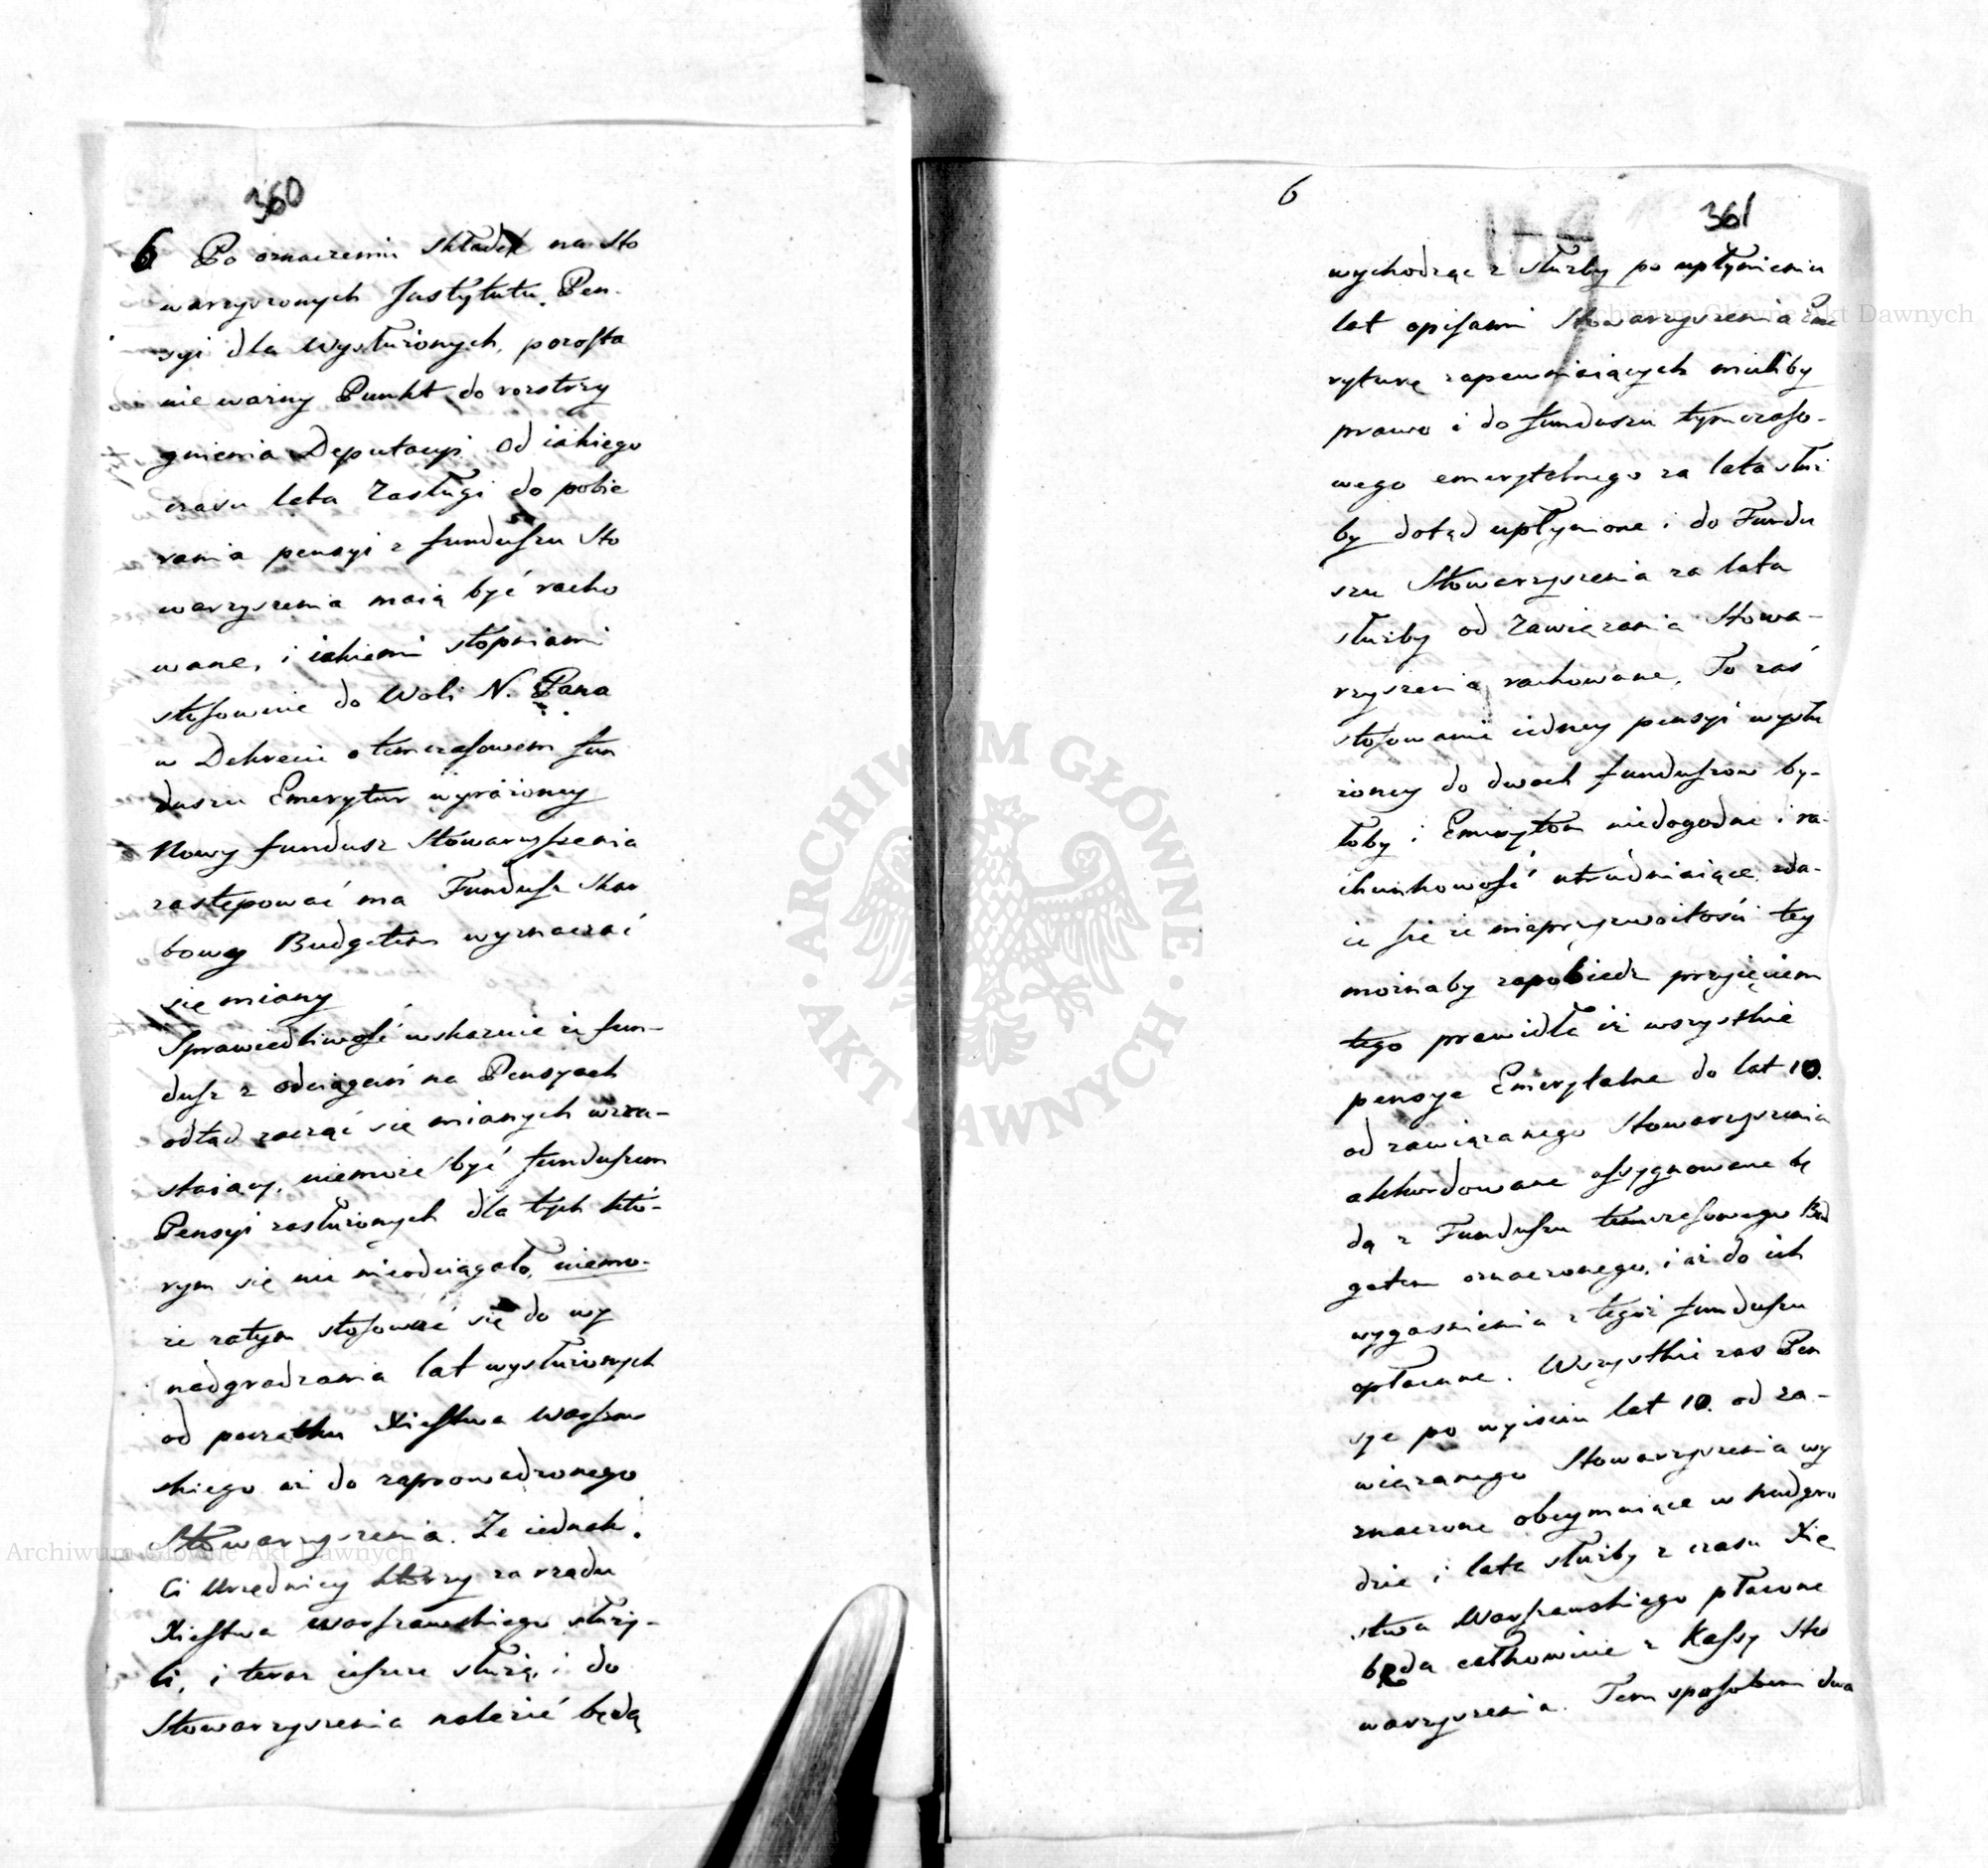 360
6 Po oznaczeniu składek na Sto
warzyszonych Jnstytutu Pen-
syi dla Wysłużonych, pozosta
nie ważny Punkt do rozstrzy
gnienia Deputacyi od iakiego
czasu lata Zasługi do pobie
rania pensyi z funduszu Sto
warzyszenia maią być racho
wane, i iakiemi stopniami
stosownie do Woli N. Pana
w Dekrecie o temczasowem fun
duszu Emerytur wyrażoney
Nowy fundusz Stowarzyszenia
zastępować ma Fundusz Skar
bowy Budgetem wyznaczać
się miany
Sprawiedliwość wskazuie iż fun-
dusz z odciągań na Pensyach
odtąd zacząć się mianych wzra-
staiący, niemoże być funduszem
Pensyi zasłużonych dla tych któ-
rym się nic nieodciągało, niemo-
że zatym stosować się do wy
nadgradzania lat wysłużonych
od początku Xięstwa Warszaw
skiego aż do zaprowadzonego
Stowarzyszenia. Że iednak
Ci Urzędnicy którzy za rządu
Xięstwa Warszawskiego służy-
li, i teraz ieszcze służą, i do
Stowarzyszenia należeć będą
6
361
wychodząc z służby po upłynieniu
lat opisami Stowarzyszenia Eme
ryturę zapewniaiących mieliby
prawo i do funduszu tymczaso-
wego emerytalnego za lata służ
by dotąd upłynione i do Fundu
szu Stowarzyszenia za lata
służby od Zawiązania Stowa-
rzyszenia rachowane. To zaś
stosowanie iedney pensyi wysłu
żoney do dwoch funduszow by-
łoby i Emerytom niedogodne i ra-
chunkowość utrudniaiące, zda-
ie się iż nieprzyzwoitości tey
możnaby zapobiedz przyięciem
tego prawidła iż wszystkie
pensye Emerytalne do lat 10.
od zawiązanego Stowarzyszenia
akkordowane assygnowane bę
dą z Funduszu temczasowego Bud
getem oznaczonego, i aż do ich
wygasnienia z tegoż funduszu
opłacane. Wszystkie zas Pen
sye po wyisciu lat 10. od za-
wiązanego Stowarzyszenia wy
znaczone obeymuiące w nadgro
dzie i lata służby z czasu Xię
stwa Warszawskiego płacone
będą całkowicie z Kassy Sto
warzyszenia. Tem sposobem dwa
Archiwum Główne Akt Dawnych
Archiwum Główne Akt Dawnych
ARCHIWUM GŁÓWNE · AKT DAWNYCH ·